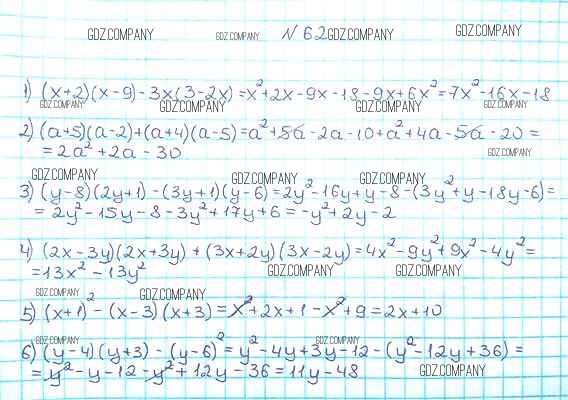 GDZ.COMPANY GDZ.COMPANY № 62 GDZ.COMPANY GDZ.COMPANY
1) (x+2)(x-9)-3x(3-2x)=x²+2x-9x-18-9x+6x²=7x²-16x-18
GDZ.COMPANY GDZ.COMPANY GDZ.COMPANY GDZ.COMPANY
2) (a+5)(a-2)+(a+4)(a-5)=a²+5a-2a-10+a²+4a-5a-20=
=2a²+2a-30 GDZ.COMPANY
GDZ.COMPANY GDZ.COMPANY GDZ.COMPANY
3) (y-8)(2y+1)-(3y+1)(y-6)=2y²-16y+y-8-(3y²+y-18y-6)=
=2y²-15y-8-3y²+17y+6=-y²+2y-2
4) (2x-3y)(2x+3y)+(3x+2y)(3x-2y)=4x²-9y²+9x²-4y²=
=13x²-13y² GDZ.COMPANY GDZ.COMPANY
GDZ.COMPANY GDZ.COMPANY
5) (x+1)²-(x-3)(x+3)=x²+2x+1-x²+9=2x+10
GDZ.COMPANY GDZ.COMPANY
6) (y-4)(y+3)-(y-6)²=y²-4y+3y-12-(y²-12y+36)=
=y²-y-12-y²+12y-36=11y-48 GDZ.COMPANY